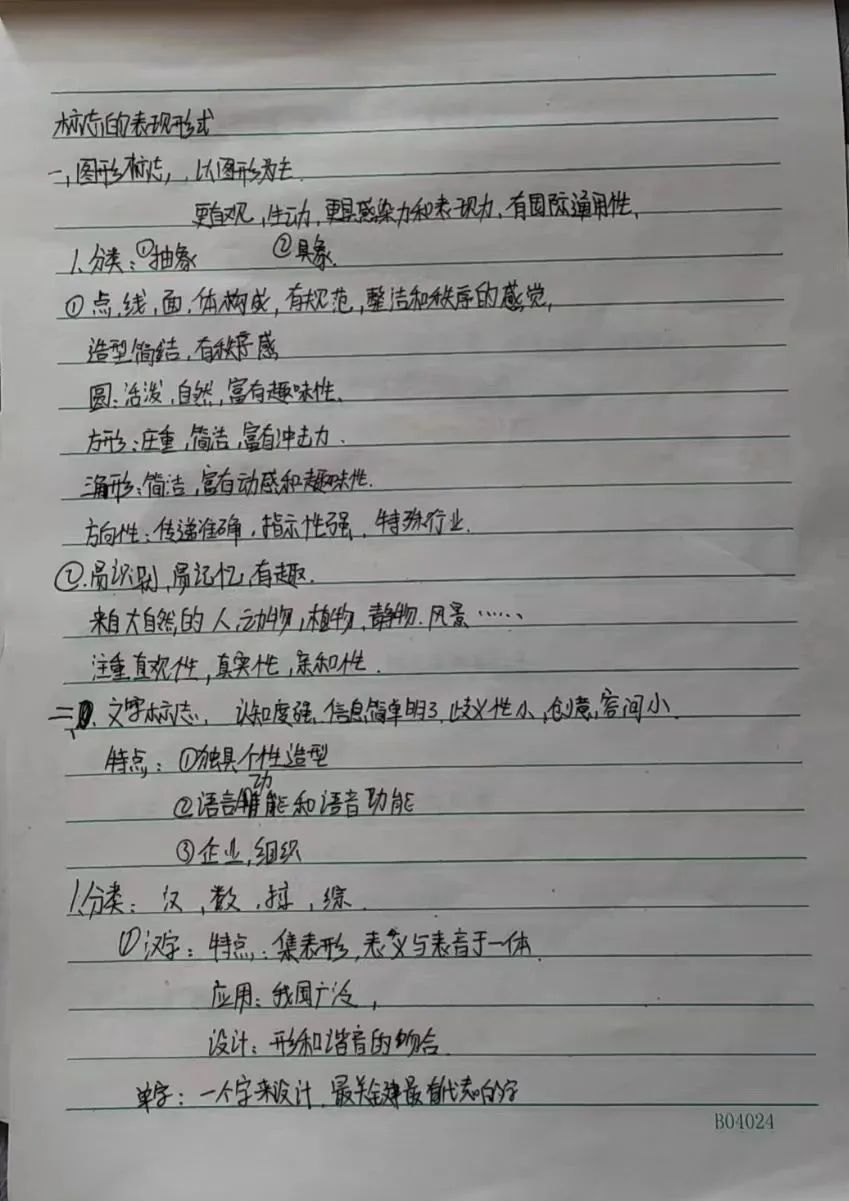 标志的表现形式
一,图形标志,以图形为主
更直观,生动,更具感染力和表现力,有国际通用性,
1.分类:①抽象 ②具象.
①点,线,面,体构成,有规范,整洁和秩序的感觉,
造型简结,有秩序感
圆:活泼,自然,富有趣味性、
方形:庄重,简洁,富有冲击力.
三角形:简洁,富有动感和趣味性.
方向性:传递准确,指示性强,特殊行业.
②.易识别,易记忆,有趣.
来自大自然的人,动物,植物,静物.风景……
注重直观性,真实性,亲和性.
二、文字标志, 认知度强,信息简单明了,歧义性小,创意,空间小.
特点:①独具个性造型
②语言功能和语音功能
③企业,组织
1.分类:汉,数,拉,综.
①汉字:特点:集表形,表义与表音于一体.
应用:我国广泛,
设计:形和谐音的吻合.
单字:一个字来设计.最关键最有代表的字
B04024